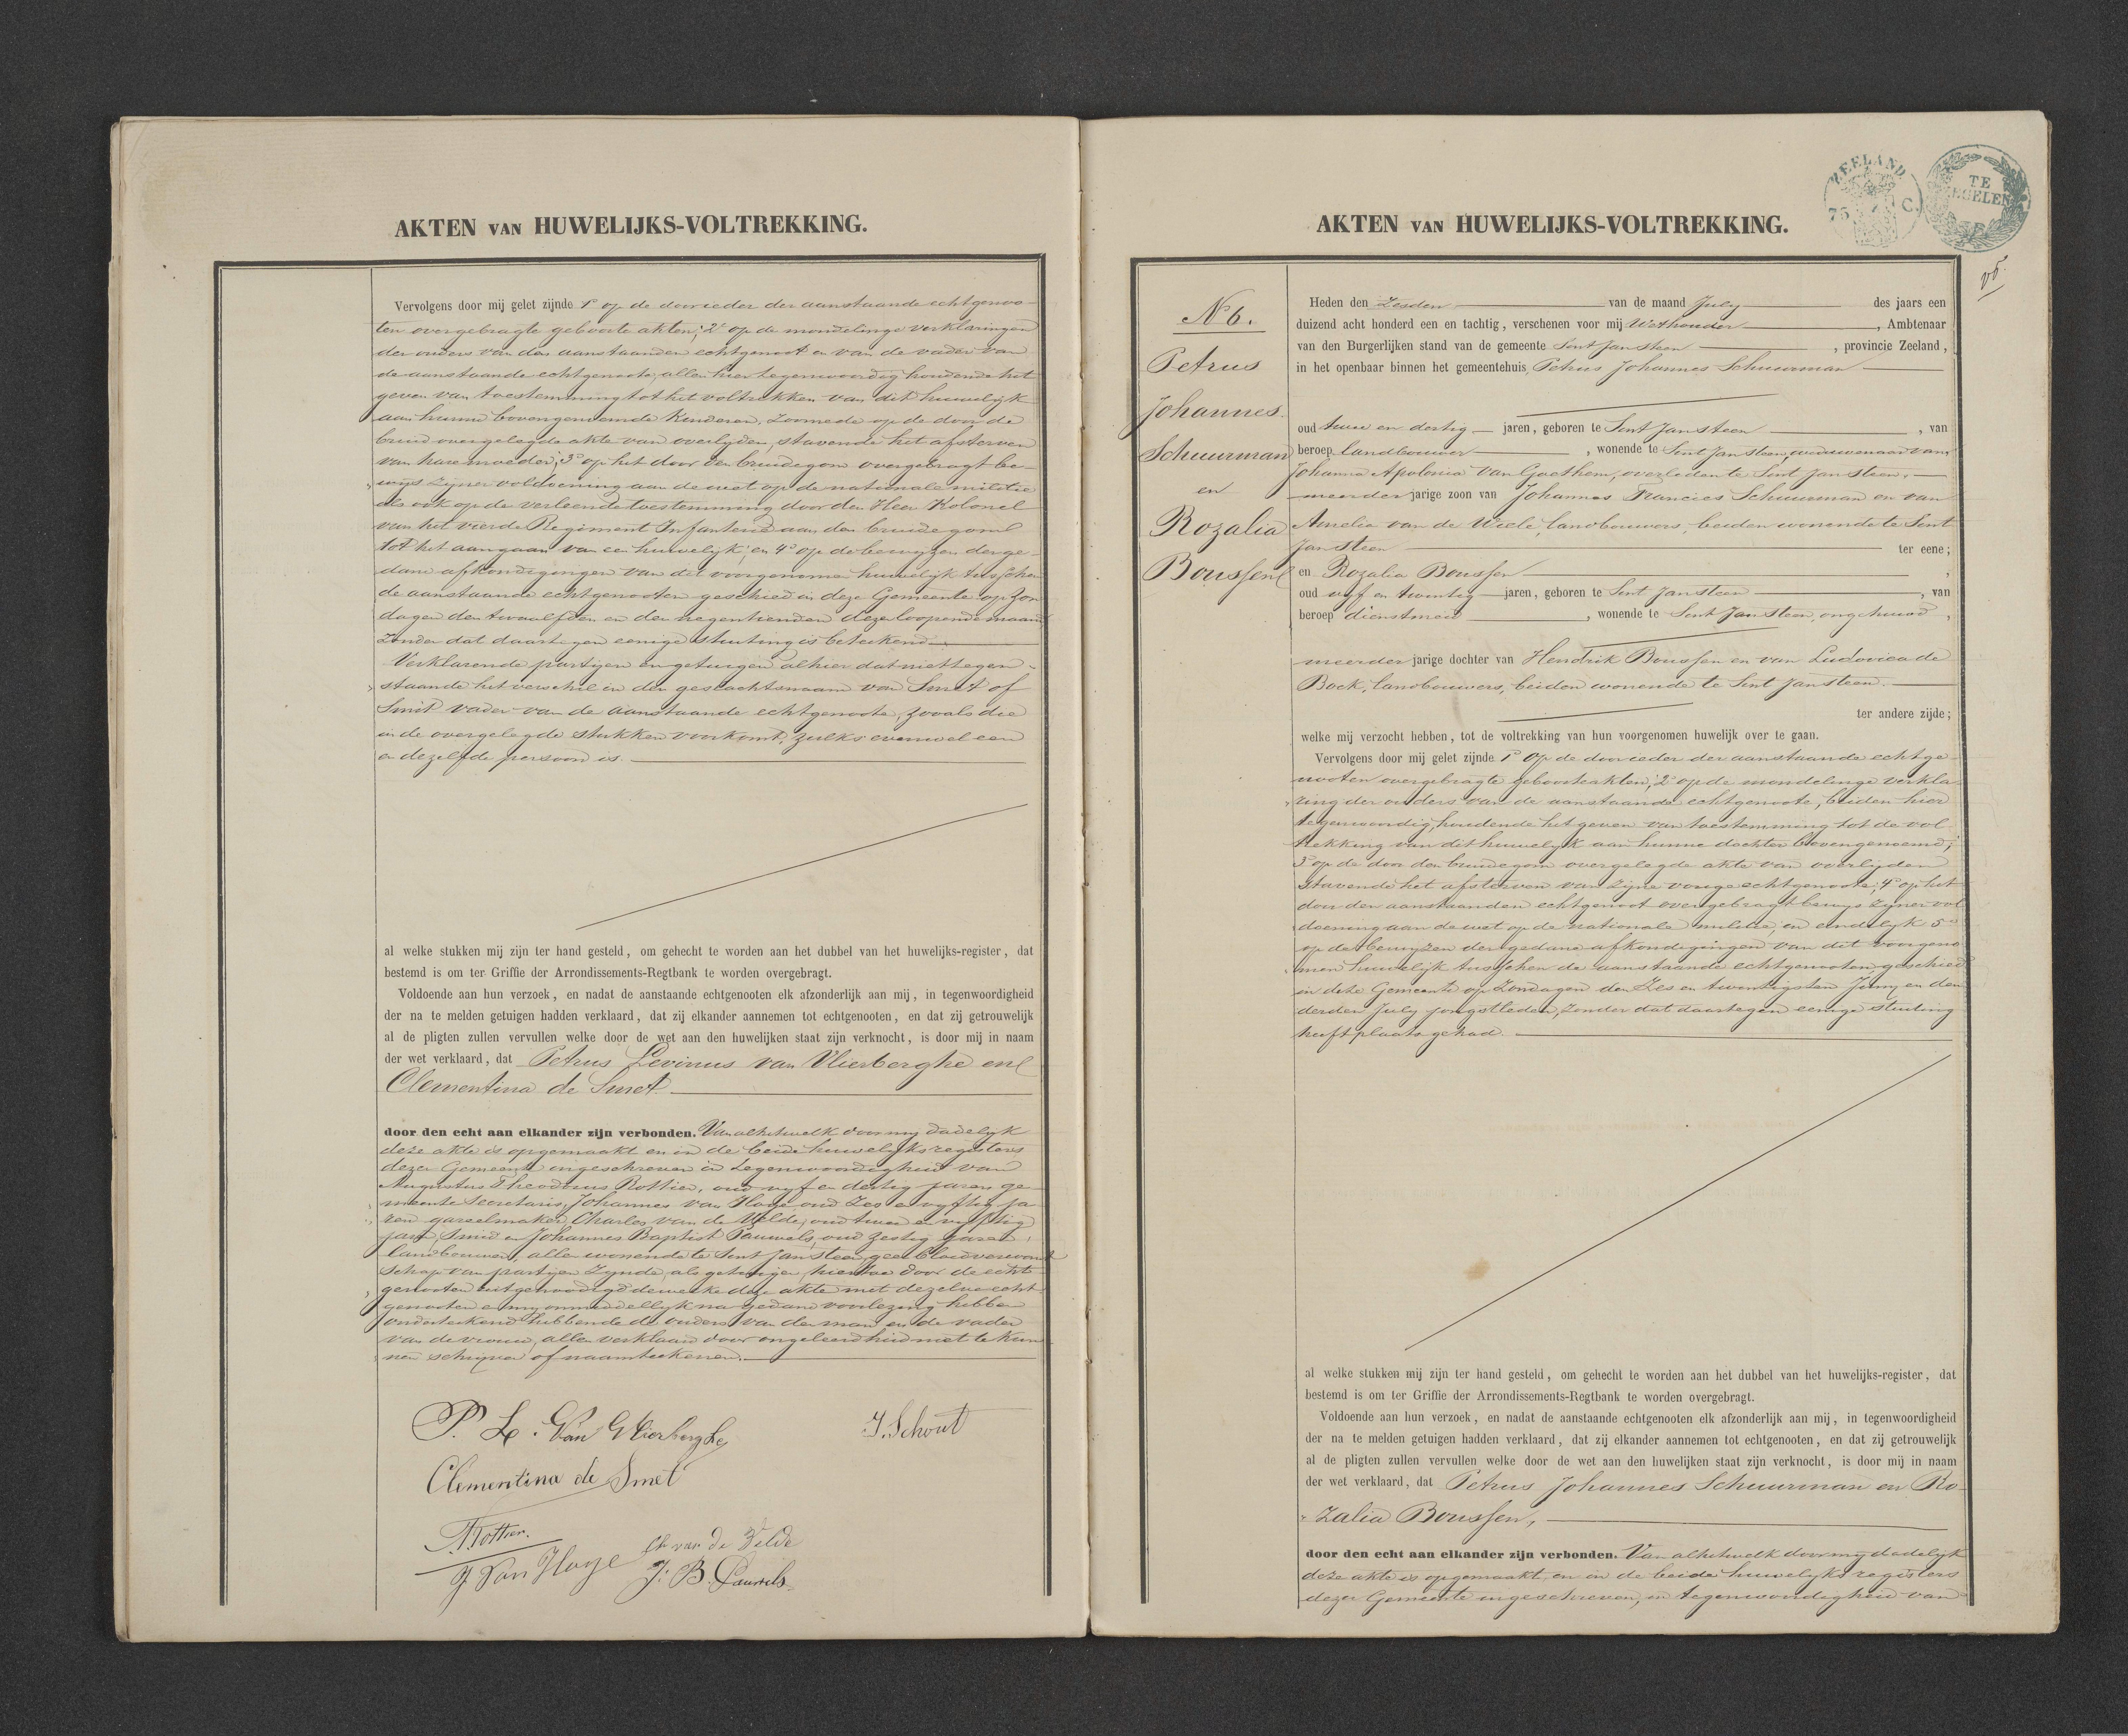 AKTEN VAN HUWELIJKS-VOLTREKKING.
Vervolgens door mij gelet zijnde 1° op de door ieder der aanstaande echtgenoo-
ten overgebragte geboorte akten; 2° op de mondelinge verklaringen
der ouders van den aanstaanden echtgenoot en van de vader van
de aanstaande echtgenoote, allen hier tegenwoordig houdende het
geven van toestemming tot het voltrekken van dit huwelijk
aan hunne bovengenoemde kinderen, zoomede op de door de
bruid overgelegde akte van overlyden, stavende het afsterven
van hare moeder; 3° op het door den bruidegom overgebragt be-
wijs zijner voldoening aan de wet op de nationale militie
als ook op de verleende toestemming door den Heer Kolonel
van het vierde Regiment Infanterie aan den bruidegom
tot het aangaan van een huwelijk, en 4° op de bewyzen der ge-
dane afkondigingen van dit voorgenomen huwelijk tusschen
de aanstaande echtgenooten geschied in deze Gemeente op Zon-
dagen den twaalfden en den negentienden dezer loopende maand
zonder dat daartegen eenige stuiting is beteekend
Verklarende partijen en getuigen alhier dat niettegen-
staande het verschil in den geslachtsnaam van Smet of
Smit vader van de aanstaande echtgenoote, zooals die
in de overgelegde stukken voorkomt, zulks evenwel een
en dezelfde persoon is.
al welke stukken mij zijn ter hand gesteld, om gehecht te worden aan het dubbel van het huwelijks-register, dat
bestemd is om ter Griffie der Arrondissements-Regtbank te worden overgebragt.
Voldoende aan hun verzoek, en nadat de aanstaande echtgenooten elk afzonderlijk aan mij, in tegenwoordigheid
der na te melden getuigen hadden verklaard, dat zij elkander aannemen tot echtgenooten, en dat zij getrouwelijk
al de pligten zullen vervullen welke door de wet aan den huwelijken staat zijn verknocht, is door mij in naam
der wet verklaard, dat Petrus Levinus van Vlierberghe en
Clementina de Smet
door den echt aan elkander zijn verbonden. Van al hetwelk door my dadelyk
deze akte is opgemaakt en in de beide huwelyks registers
dezer Gemeente ingeschreven in tegenwoordigheid van
Augustus Theodorus Rottier, oud vyf en dertig jaren ge-
meente Secretaris, Johannes van Hoye oud Zes en vyftig ja-
ren gareelmaker, Charles van de Velde, oud twee en vyftig
jaren, Smid en Johannes Baptist Pauwels, oud zestig jaren,
landbouwer, allen wonende te Sint Jansteen, geen bloedverwant
schap van partijen zynde, als getuigen, hiertoe door de echt-
genooten uitgenoodigd dewelke deze akte met dezelve echt-
genooten en my onmiddellyk na gedane voorlezing hebben
onderteekend hebbende de ouders van den man en de vader
van de vrouw, allen verklaard door ongeleerdheid niet te kun-
nen schrijven of naamteekenen.
P. L. Van Vlierberghe
J. Schout
Clementina de Smet
A Rottier.
Ch van de Velde
J Van Hoye
J. B. Pauwels
AKTEN VAN HUWELIJKS-VOLTREKKING.
ZEELAND
75 C.
TE
ZEGELEN
N 6.
Petrus
Johannes
Schuurman
en
Rozalia
Boussen
Heden den Zesden van de maand July des jaars een
duizend acht honderd een en tachtig, verschenen voor mij Wethouder, Ambtenaar
van den Burgerlijken stand van de gemeente Sint Jansteen, provincie Zeeland,
in het openbaar binnen het gemeentehuis, Petrus Johannes Schuurman
oud twee en dertig jaren, geboren te Sint Jansteen, van
beroep landbouwer, wonende te Sint Jansteen, weduwenaar van
Johanna Apolonia van Goethem, overleden te Sint Jansteen,
meerder jarige zoon van Johannes Francies Schuurman en van
Amelia van de Wiele, landbouwers, beiden wonende te Sint
Jansteen ter eene;
en Rozalia Boussen;
oud vyf en twintig jaren, geboren te Sint Jansteen, van
beroep dienstmeid, wonende te Sint Jansteen, ongehuwd,
meerder jarige dochter van Hendrik Boussen en van Ludovica de
Bock, landbouwers, beiden wonende te Sint Jansteen.
ter andere zijde;
welke mij verzocht hebben, tot de voltrekking van hun voorgenomen huwelijk over te gaan.
Vervolgens door mij gelet zijnde 1° Op de door ieder der aanstaande echtge-
nooten overgebragte geboorteakten; 2° op de mondelinge verkla-
ring der ouders van de aanstaande echtgenoote, beiden hier
tegenwoordig, houdende het geven van toestemming tot de vol
trekking van dit huwelyk aan hunne dochter bovengenoemd;
3° op de door den bruidegom overgelegde akte van overlijden
stavende het afsterven van zijne vorige echtgenoote; 4° op het
door den aanstaanden echtgenoot overgebragt bewys zijner vol
doening aan de wet op de nationale militie, en eindelyk 5°
op de bewyzen der gedane afkondigingen van dit voorgeno
men huwelijk tusschen de aanstaande echtgenooten geschied
in deze Gemeente op Zondagen den Zes en twentigsten Juny en den
derden July jongstleden, zonder dat daartegen eenige stuiting
heeft plaats gehad.
al welke stukken mij zijn ter hand gesteld, om gehecht te worden aan het dubbel van het huwelijks-register, dat
bestemd is om ter Griffie der Arrondissements-Regtbank te worden overgebragt.
Voldoende aan hun verzoek, en nadat de aanstaande echtgenooten elk afzonderlijk aan mij, in tegenwoordigheid
der na te melden getuigen hadden verklaard, dat zij elkander aannemen tot echtgenooten, en dat zij getrouwelijk
al de pligten zullen vervullen welke door de wet aan den huwelijken staat zijn verknocht, is door mij in naam
der wet verklaard, dat Petrus Johannes Schuurman en Ro-
zalia Boussen,
door den echt aan elkander zijn verbonden. Van al hetwelk door my dadelyk
deze akte is opgemaakt, en in de beide huwelyks registers
dezer Gemeente ingeschreven, in tegenwoordigheid van